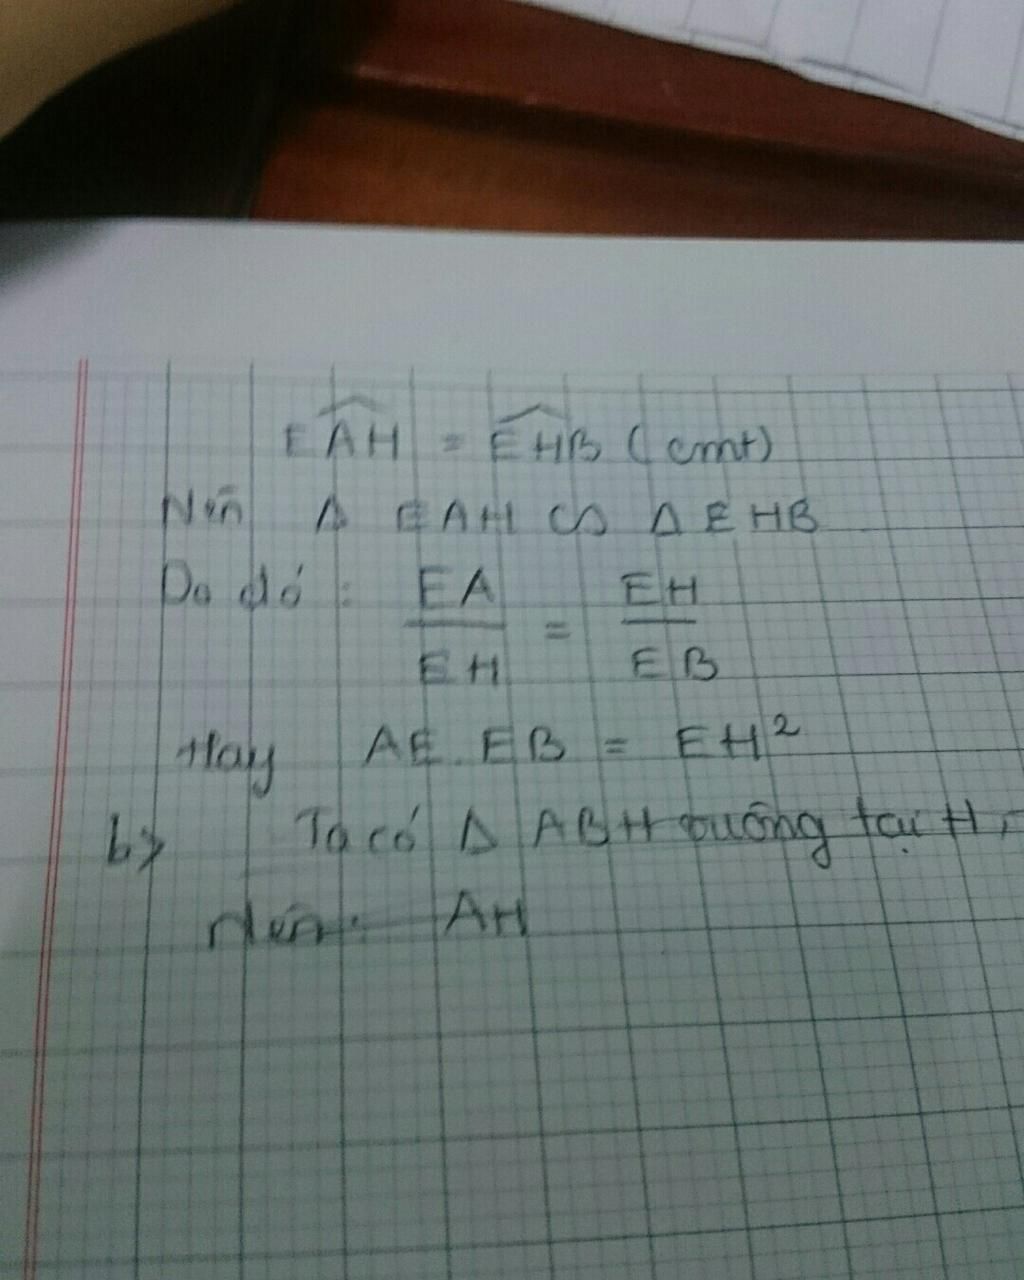 EAH = EHB (cmt)
Nên Δ EAH ∽ Δ EHB
Do đó : EA/EH = EH/EB
Hay AE . EB = EH²
b> Ta có Δ ABH vuông tại H,
Nên: AH